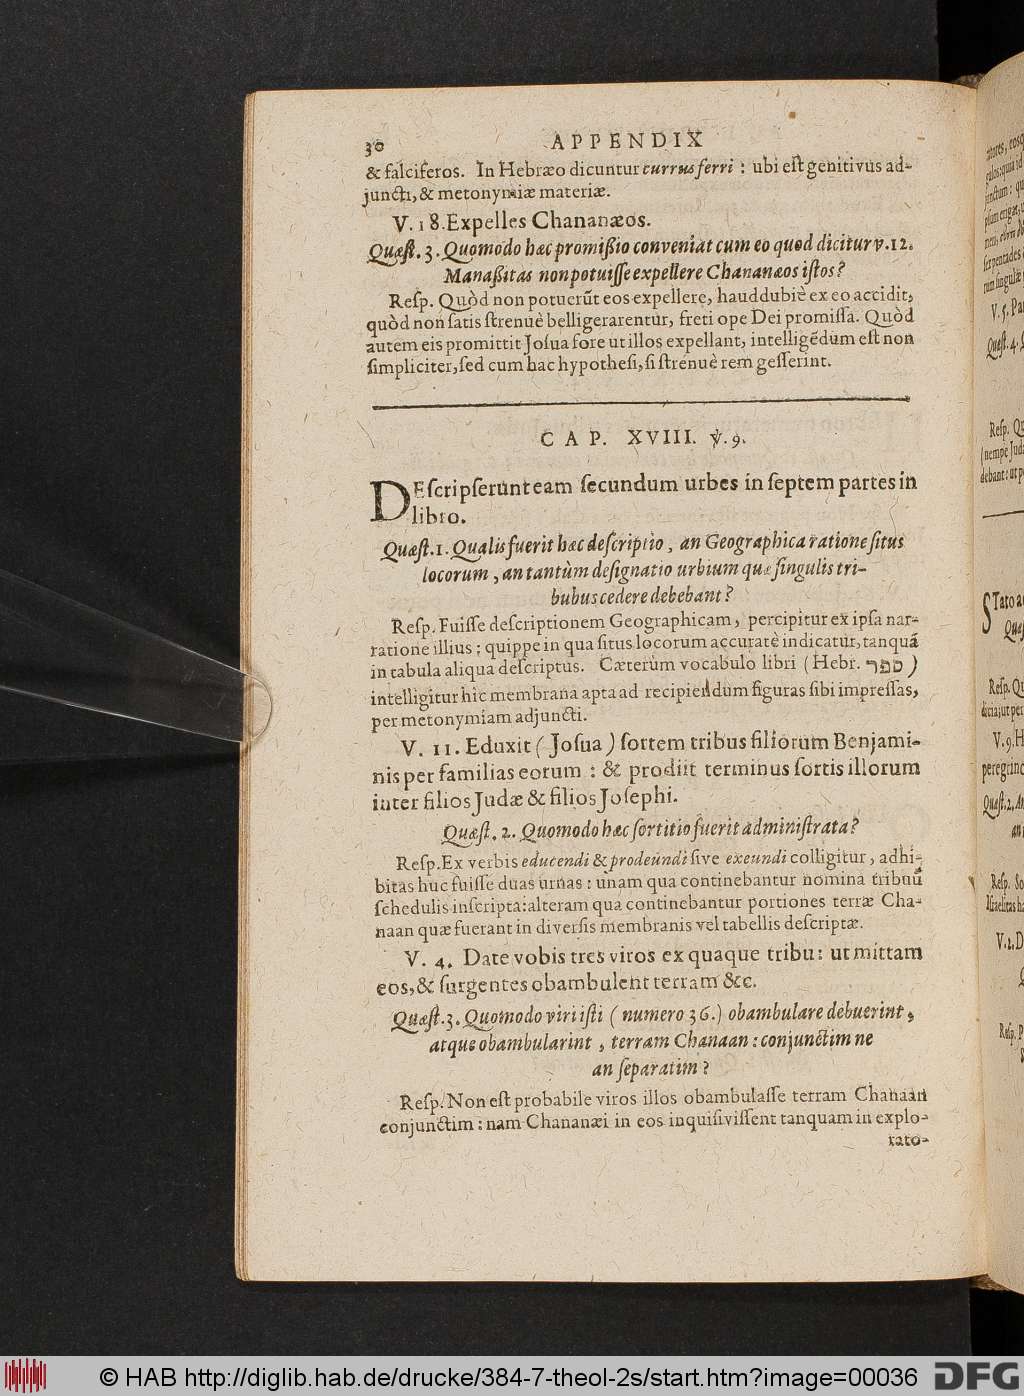 30 APPENDIX
& falciferos. In Hebræo dicuntur currus ferri : ubi est genitivus ad-
juncti, & metonymiæ materiæ.
V. 18. Expelles Chananæos.
Quæst. 3. Quomodo hæc promißio conveniat cum eo quod dicitur v. 12.
Manaßitas non potuisse expellere Chananæos istos?
Resp. Quòd non potuerūt eos expellere, hauddubiè ex eo accidit,
quòd non satis strenuè belligerarentur, freti ope Dei promissa. Quòd
autem eis promittit Josua fore ut illos expellant, intelligēdum est non
simpliciter, sed cum hac hypothesi, si strenuè rem gesserint.
CAP. XVIII. v. 9.
DEscripserunt eam secundum urbes in septem partes in
libro.
Quæst. 1. Qualis fuerit hæc descriptio, an Geographica ratione situs
locorum, an tantùm designatio urbium quæ singulis tri-
bubus cedere debebant?
Resp. Fuisse descriptionem Geographicam, percipitur ex ipsa nar-
ratione illius; quippe in qua situs locorum accuratè indicatur, tanquā
in tabula aliqua descriptus. Cæterùm vocabulo libri (Hebr. ספר)
intelligitur hic membrana apta ad recipiendum figuras sibi impressas,
per metonymiam adjuncti.
V. 11. Eduxit (Josua) sortem tribus filiorum Benjami-
nis per familias eorum : & prodiit terminus sortis illorum
inter filios Judæ & filios Josephi.
Quæst. 2. Quomodo hæc sortitio fuerit administrata?
Resp. Ex verbis educendi & prodeundi sive exeundi colligitur, adhi-
bitas huc fuisse duas urnas : unam qua continebantur nomina tribuū
schedulis inscripta: alteram qua continebantur portiones terræ Cha-
naan quæ fuerant in diversis membranis vel tabellis descriptæ.
V. 4. Date vobis tres viros ex quaque tribu: ut mittam
eos, & surgentes obambulent terram &c.
Quæst. 3. Quomodo viri isti (numero 36.) obambulare debuerint,
atque obambularint, terram Chanaan : conjunctim ne
an separatim?
Resp. Non est probabile viros illos obambulasse terram Chanaan
conjunctim : nam Chananæi in eos inquisivissent tanquam in explo-
rato-
© HAB http://diglib.hab.de/drucke/384-7-theol-2s/start.htm?image=00036
DFG